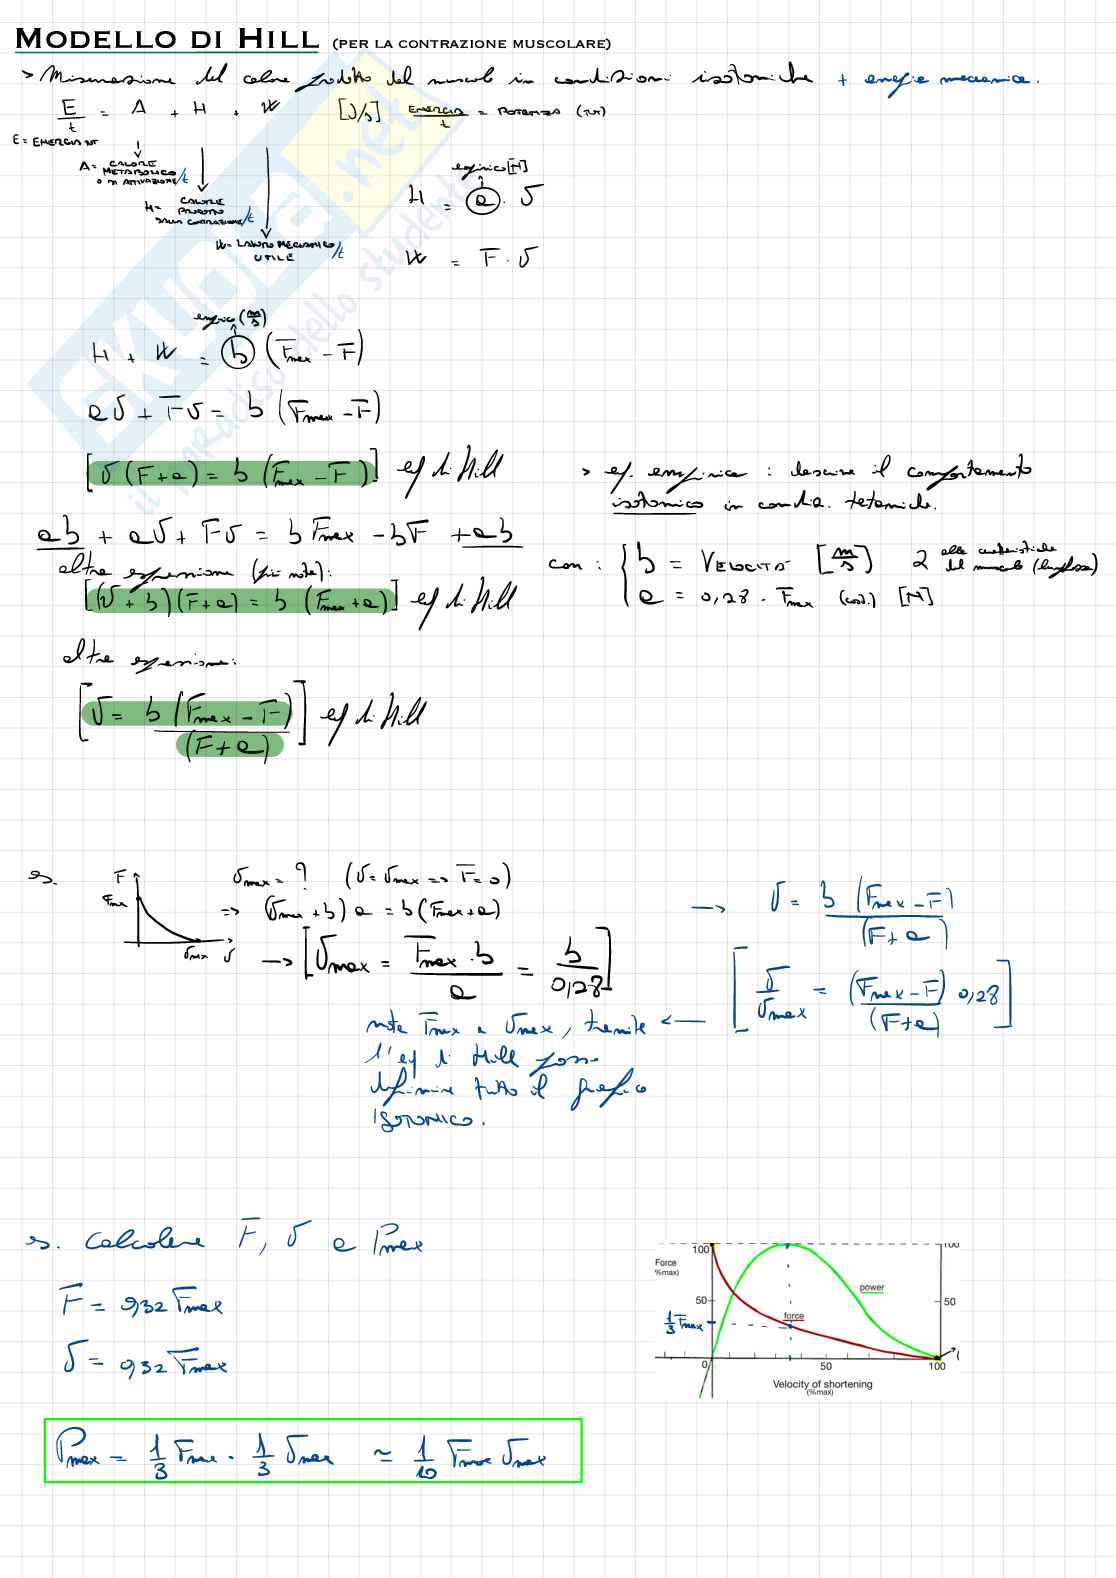 MODELLO DI HILL (PER LA CONTRAZIONE MUSCOLARE)
> Misurazione del calore prodotto dal muscolo in condizioni isotoniche + energie meccanica.
E/t = A + H + W [J/s] ENERGIA/t = POTENZA (TOT)
E = ENERGIA TOT
A = CALORE METABOLICO O DI ATTIVAZIONE/t
H = CALORE PRODOTTO DALLA CONTRAZIONE/t
W = LAVORO MECCANICO UTILE/t
empirico [N]
H = a · v
W = F · v
empirico (m/s)
H + W = b (Fmax - F)
av + Fv = b (Fmax - F)
[v (F+a) = b (Fmax - F)] eq di Hill
> eq. empirica : descrive il comportamento
isotonico in condiz. tetaniche.
ab + av + Fv = b Fmax - bF + ab
altra espressione (più nota):
[(v + b)(F+a) = b (Fmax + a)] eq di Hill
con : { b = VELOCITÀ [m/s] 2 alle caratteristiche del muscolo (lunghezza)
a = 0,28 · Fmax (cost.) [N]
altra espressione:
[v = b (Fmax - F)/(F+a)] eq di Hill
es.
F
Fmax
vmax v
vmax = ? (v = vmax => F = 0)
=> (vmax + b) a = b (Fmax + a)
-> [vmax = Fmax · b/a = b/0,28]
-> v = b (Fmax - F)/(F+a)
[v/vmax = (Fmax - F) 0,28/(F+a)]
note Fmax e vmax, tramite <-
l'eq di Hill posso
definire tutto il grafico
ISOTONICO.
es. Calcolare F, v e Pmax
F = 0,32 Fmax
v = 0,32 Fmax
Pmax = 1/3 Fmax · 1/3 vmax ≃ 1/10 Fmax vmax
Force
%max)
100
50
0
1/3 Fmax
power
force
100
50
50
100
Velocity of shortening
(%max)
SKUOLA.net
il paradiso dello studente